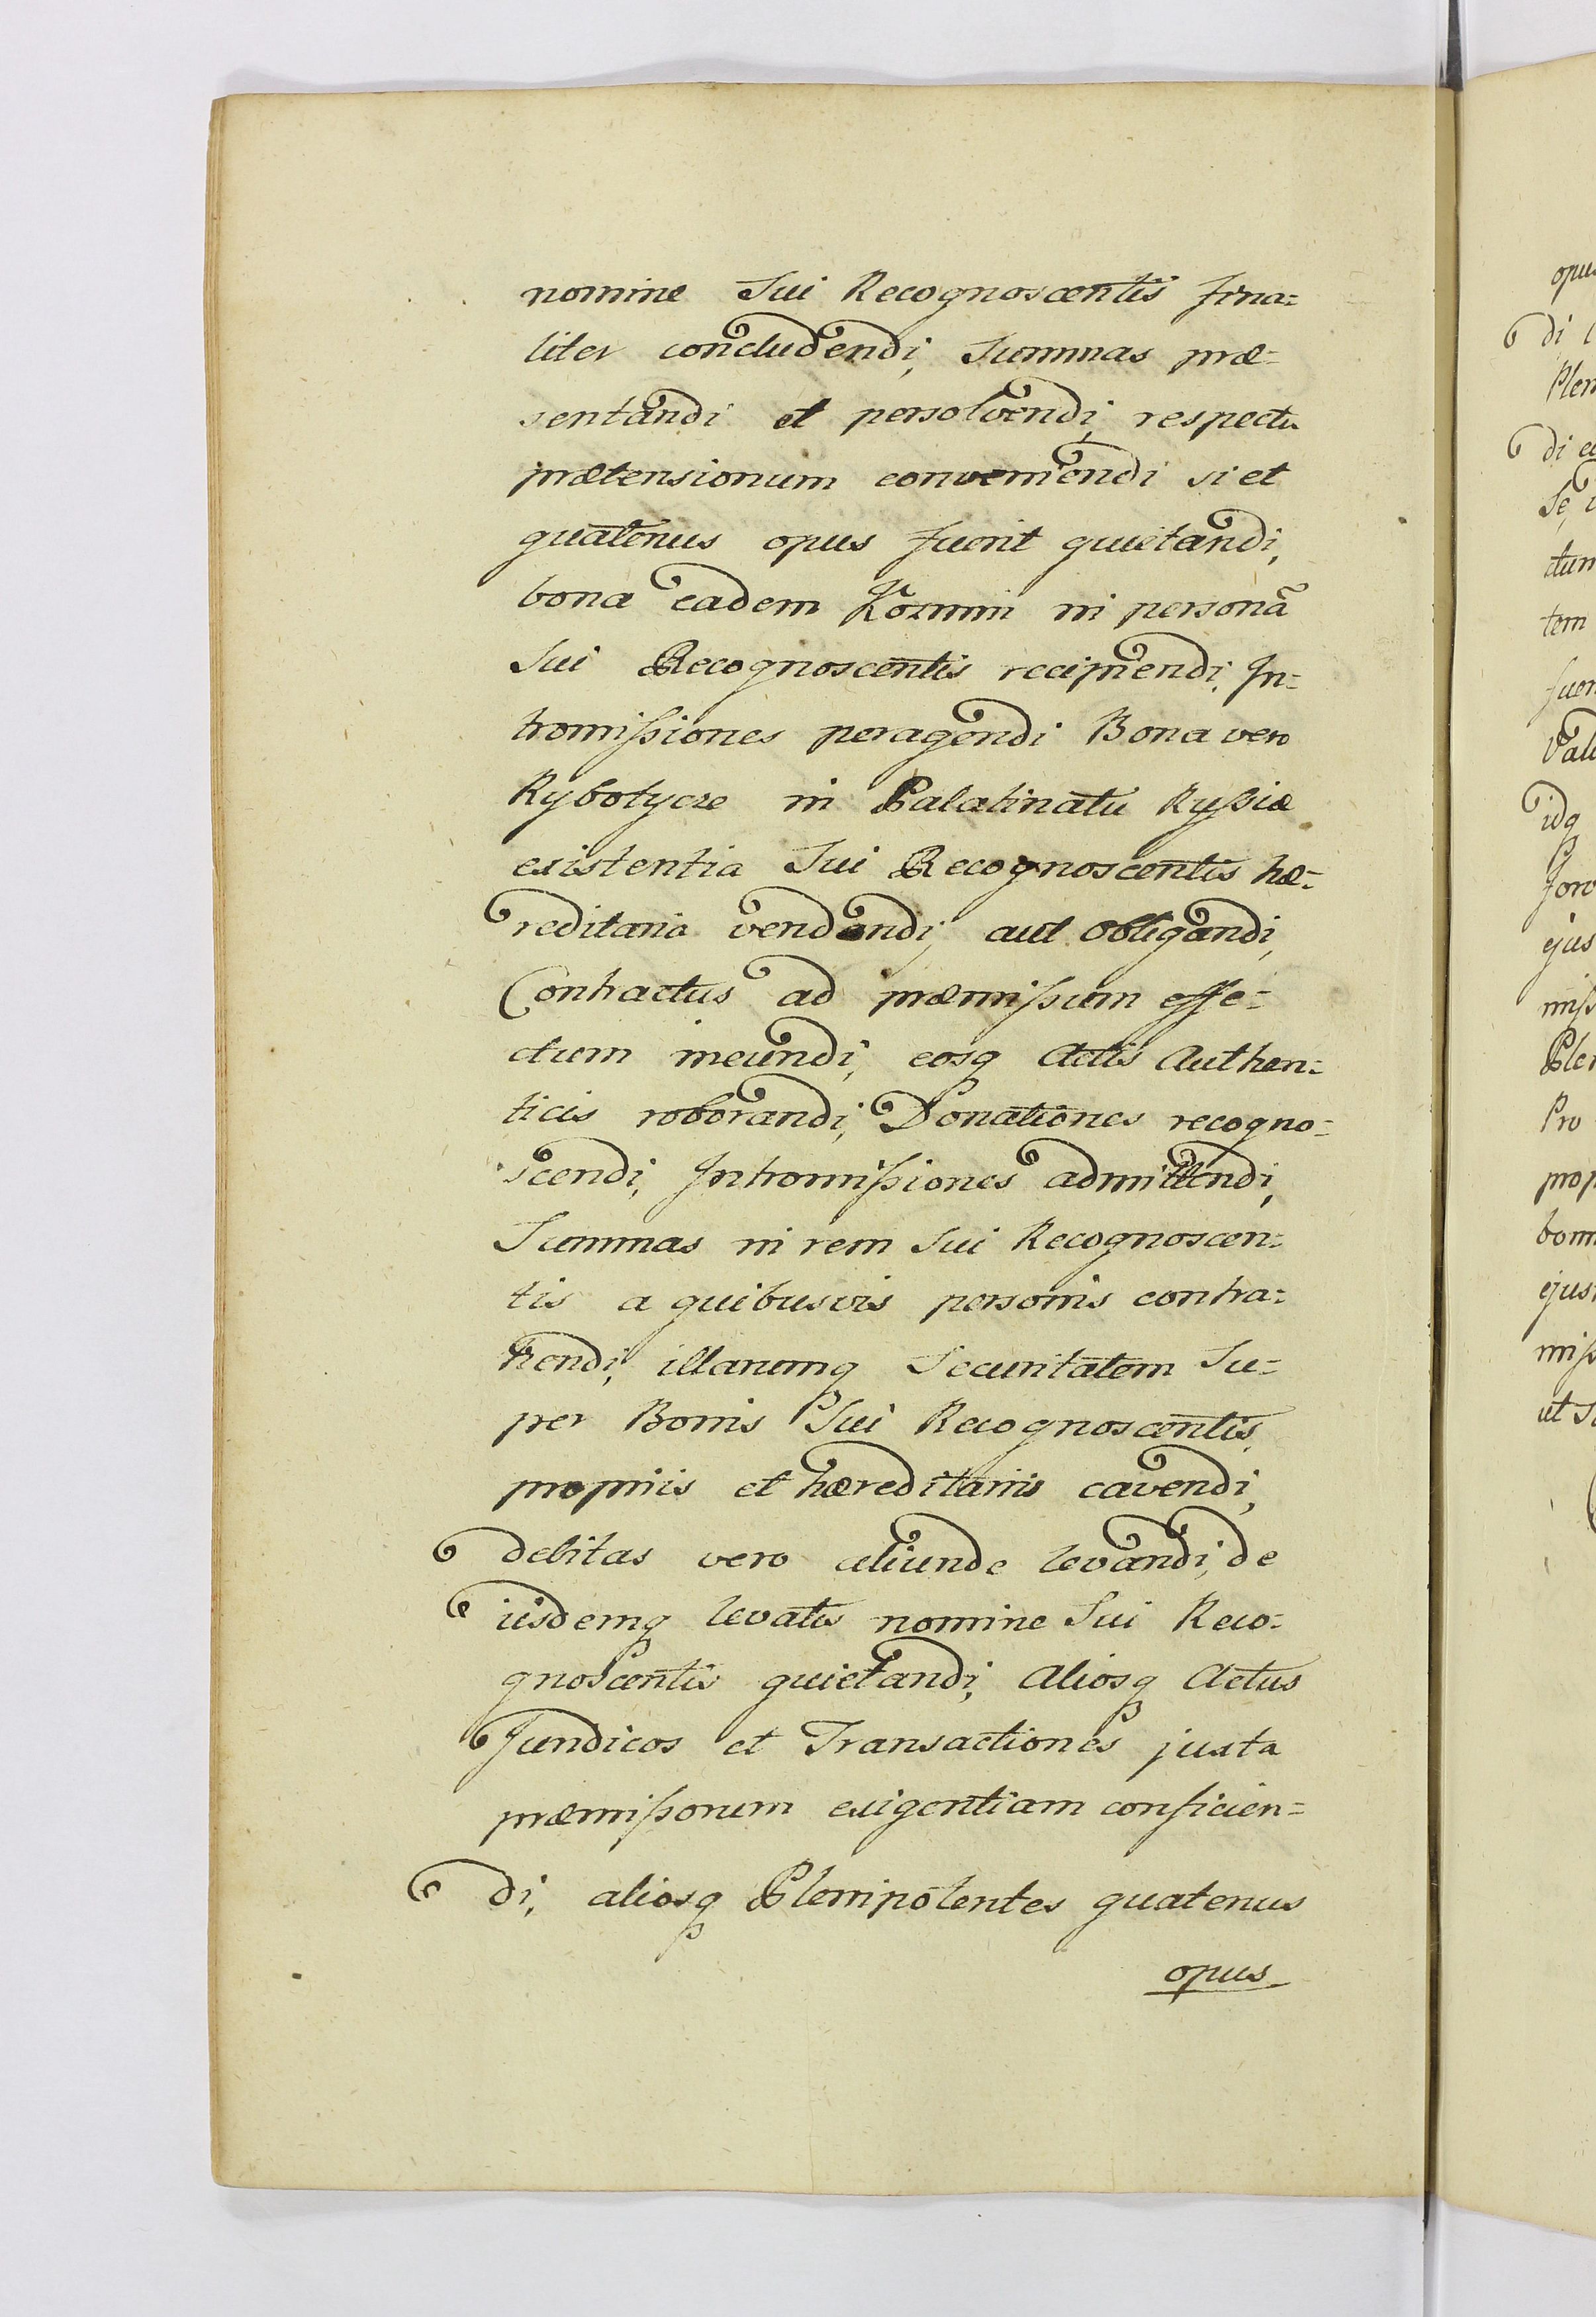 nomine Sui Recognoscentis fina=
liter concludendi, Summas præ=
sentandi et persolvendi, respectu
prætensionum conveniendi si et
quatenus opus fuerit quietandi,
bona eadem Kozmin in personã
Sui Recognoscentis recipiendi, In=
tromissiones peragendi Bona vero
Rybotycze in Palatinatu Russiæ
existentia Sui Recognoscentis hæ=
reditaria vendendi, aut obligandi,
Contractus ad præmissum effe=
ctum ineundi, eosq Actis Authen=
ticis roborandi, Donationes recogno=
scendi, Intromissiones admittendi,
Summas in rem Sui Recognoscen=
tis a quibusvis personis contra=
hendi, illarumq Securitatem Su=
per Bonis Sui Recognoscentis
propriis et hæreditariis cavendi,
debitas vero aliunde levandi, de
iisdemq levatis nomine Sui Reco=
gnoscentis quietandi, Aliosq Actus
Juridicos et Transactiones juxta
præmissorum exigentiam conficien=
di, aliosq Plenipotentes quatenus
opus